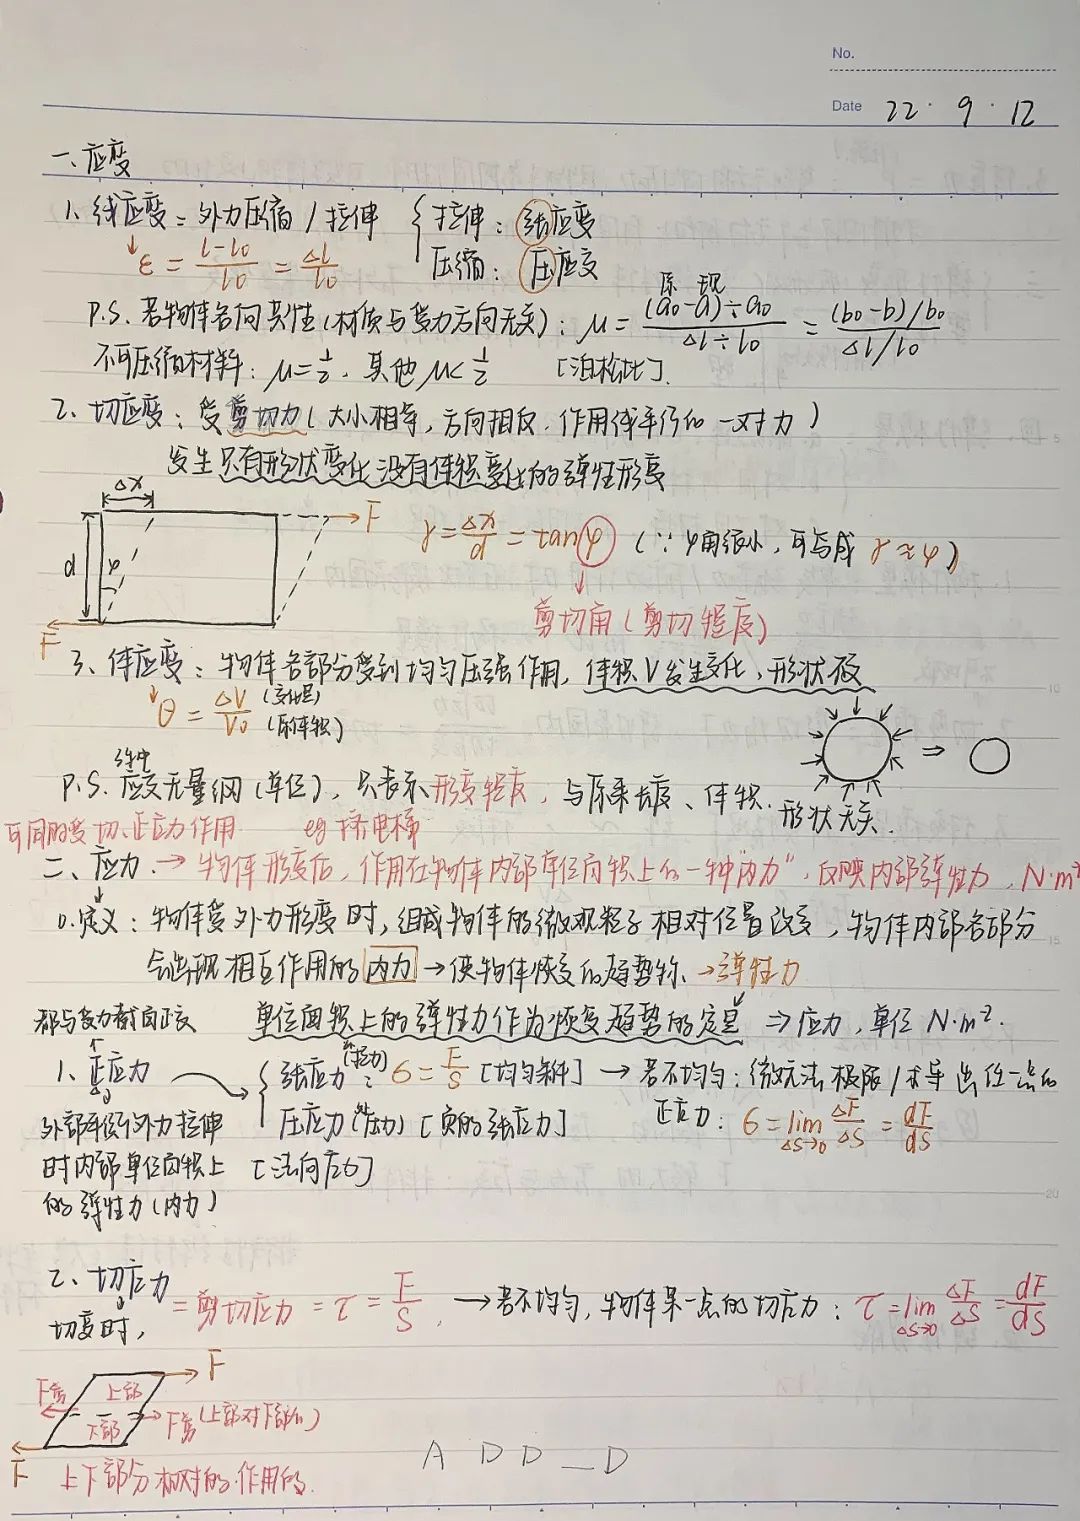 No.
Date 22·9·12
一、应变
1、线应变=外力压缩/拉伸 { 拉伸:张应变
压缩:压应变
ε = (l-l₀)/l₀ = Δl/l₀
原 现
P.S. 若物体各向同性(材质与受力方向无关): μ = ((a₀-a)÷a₀)/(Δl÷l₀) = ((b₀-b)/b₀)/(Δl/l₀)
不可压缩材料: μ=1/2. 其他 μ<1/2 [泊松比].
2、切应变:受剪切力(大小相等,方向相反.作用线平行的一对力)
发生只有形状变化没有体积变化的弹性形变
Δx
d φ F F
γ = Δx/d = tanφ (∵ φ角很小,可写成 γ≈φ)
剪切角(剪切程度)
3、体应变:物体各部分受到均匀压强作用,体积V发生变化、形状不变
θ = ΔV/V₀ (变化量) (原体积)
⇒
P.S. 应变无量纲(单位),只表示形变程度,与原来长度、体积.形状无关.
可同时受切、正应力作用 eg 挤电梯
二、应力 → 物体形变后,作用在物体内部单位面积上的一种"内力",反映内部弹性力,N·m²
0.定义:物体受外力形变时,组成物体的微观粒子相对位置改变,物体内部各部分
会出现相互作用的内力→使物体恢复的趋势称→弹性力
都与受力截面正交 单位面积上的弹性力作为恢复趋势的定量 ⇒ 应力,单位 N·m².
1、正应力 { 张应力(拉力): σ = F/S [均匀条件] → 若不均匀:微元法极限/求导出任一点的
外部平衡外力拉伸 压应力(压力) [负的张应力] 正应力: σ = lim ΔS→0 ΔF/ΔS = dF/dS
时内部单位面积上 [法向应力]
的弹性力(内力)
2、切应力 = 剪切应力 = τ = F/S. → 若不均匀,物体某一点的切应力: τ = lim ΔS→0 ΔF/ΔS = dF/dS
切变时,
F
F剪 上部
下部 F剪(上部对下部的)
F
上下部分相对的作用的.
A D D _ D